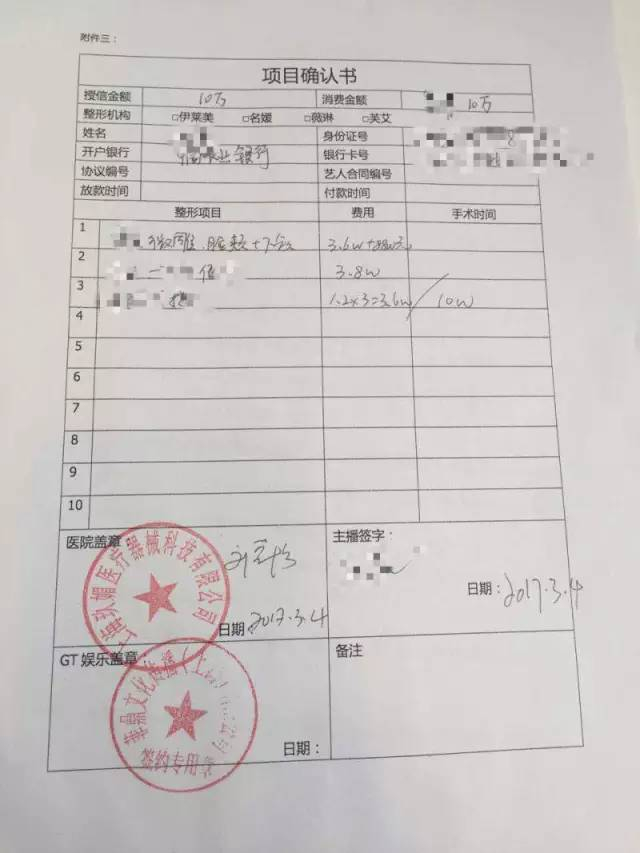 附件三：
项目确认书
授信金额 10万 消费金额 10万
整形机构 □伊莱美 □名媛 □薇琳 □芙艾
姓名 身份证号 8
开户银行 银行 银行卡号
协议编号 艺人合同编号
放款时间 付款时间
整形项目 费用 手术时间
1 微雕 3.6w
2 3.8w
3 1.2x3=3.6w 10w
4
5
6
7
8
9
10
医院盖章：
主播签字：
医疗器械科技有限公司
日期：2017.3.4
日期：2017.3.4
GT 娱乐盖章
备注
华鼎文化传播（上
签约专用章
日期：